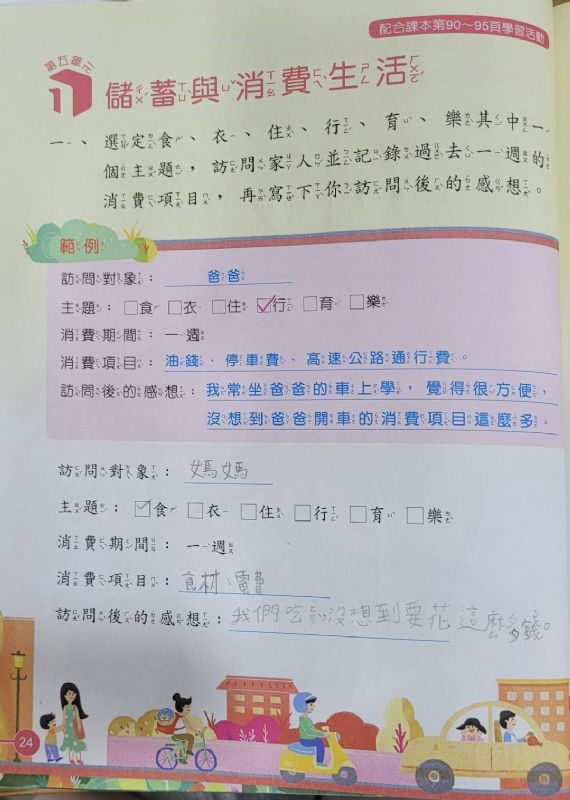 配合課本第90~95頁學習活動
第五單元
1 儲蓄與消費生活
一、選定食、衣、住、行、育、樂其中一
個主題，訪問家人並記錄過去一週的
消費項目，再寫下你訪問後的感想。
範例
訪問對象：爸爸
主題：□食 □衣 □住 ☑行 □育 □樂
消費期間：一週
消費項目：油錢、停車費、高速公路通行費。
訪問後的感想：我常坐爸爸的車上學，覺得很方便，
沒想到爸爸開車的消費項目這麼多。
訪問對象：媽媽
主題：☑食 □衣 □住 □行 □育 □樂
消費期間：一週
消費項目：食材、電費
訪問後的感想：我們吃 沒想到要花這麼多錢。
24